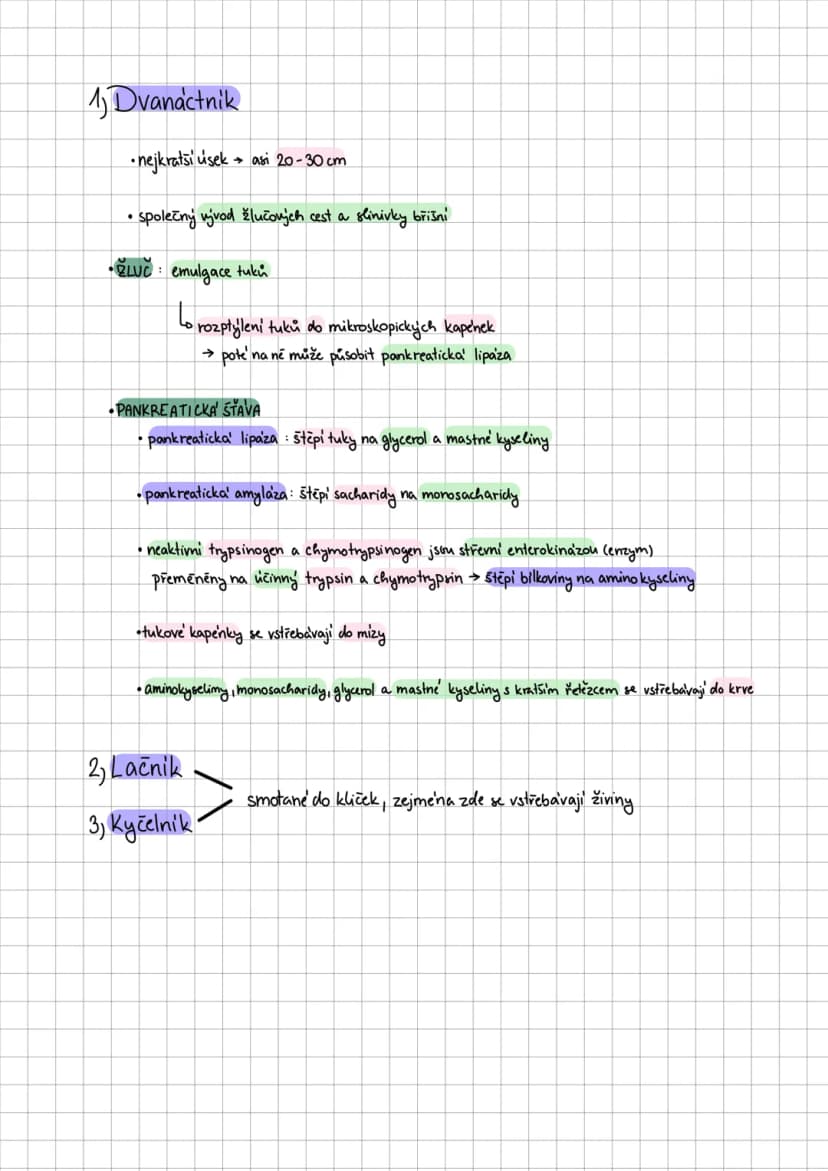 1) Dvanáctník
• nejkratší úsek → asi 20-30 cm
• společný vývod žlučových cest a slinivky břišní
• ŽLUČ : emulgace tuků
↳ rozptýlení tuků do mikroskopických kapének
→ poté na ně může působit pankreatická lipáza
• PANKREATICKÁ ŠŤÁVA
• pankreatická lipáza : štěpí tuky na glycerol a mastné kyseliny
• pankreatická amyláza : štěpí sacharidy na monosacharidy
• neaktivní trypsinogen a chymotrypsinogen jsou střevní enterokinázou (enzym)
přeměněny na účinný trypsin a chymotryprin → štěpí bílkoviny na aminokyseliny
• tukové kapénky se vstřebávají do mízy
• aminokyseliny, monosacharidy, glycerol a mastné kyseliny s kratším řetězcem se vstřebávají do krve
2) Lačník
smotané do kliček, zejména zde se vstřebávají živiny
3) Kyčelník